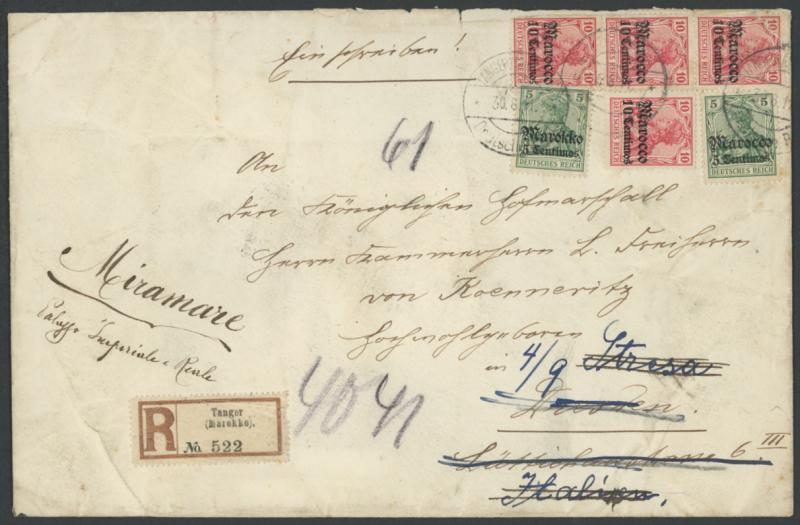 Einschreiben!
10 10 10
Marocco 10 Centimos Marocco 10 Centimos Marocco 10 Centimos
DEUTSCHES REICH DEUTSCHES REICH DEUTSCHES REICH
5 5
Marokko 5 Centimos
DEUTSCHES REICH
Marocco 10 Centimos
DEUTSCHES REICH
10
5 5
Marocco 5 Centimos
DEUTSCHES REICH
TANGER
30.8
61
An
den Königlichen Hofmarschall
Herrn Kammerherrn L. Freiherrn
von Koenneritz
Hochwohlgeboren
in 4/9 Stresa
Dresden.
Lüttichaustrasse 6. III
Italien.
Miramare
Palazzo Imperiale e Reale
40 41
R
Tanger
(Marokko).
No. 522